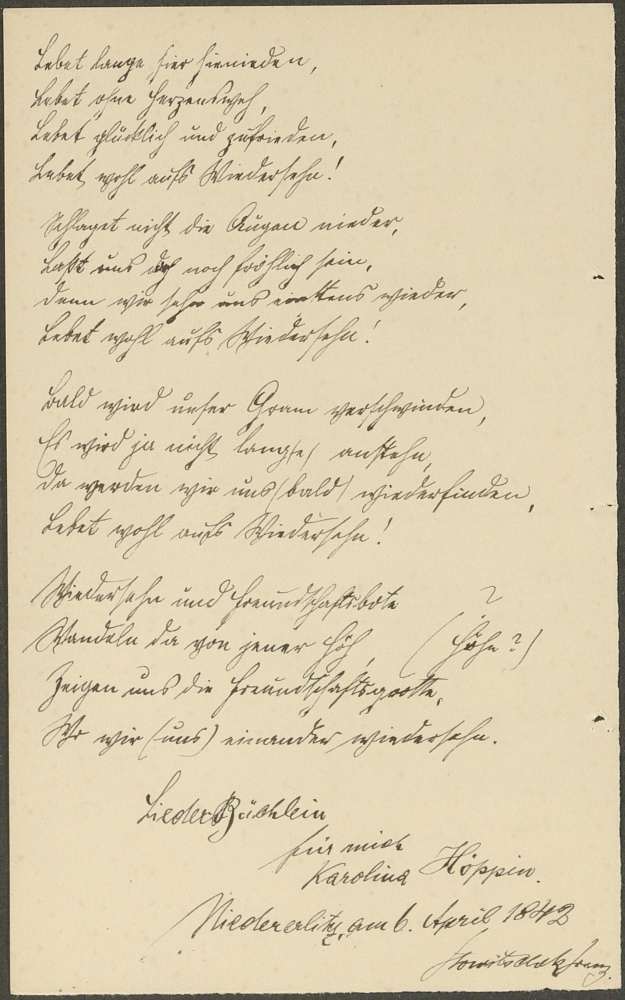 Lebet lange hier hienieden,
Lebet ohne Herzensweh,
Lebet glücklich und zufrieden,
Lebet wohl aufs Wiedersehn!
Schlaget nicht die Augen nieder,
Laßt uns doch noch fröhlich sein,
denn wir sehn uns wieder,
Lebet wohl aufs Wiedersehn!
Bald wird unser Gram verschwinden,
Es wird ja nicht lang(e) anstehn,
da werden wir uns (bald) wiederfinden,
Lebet wohl aufs Wiedersehn!
Wiedersehn und Freundschaftsbote ?
Wandeln da von jener Höh, (Höhn?)
Zeigen uns die Freundschaftsgrotte,
Wo wir (uns) einander wiedersehn.
Lieder Büchlein
für mich
Karolina Höppin.
am 6. April 1842